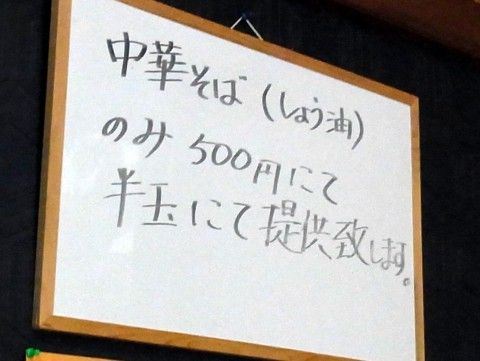 中華そば(しょう油)
のみ 500円にて
半玉にて提供致します。